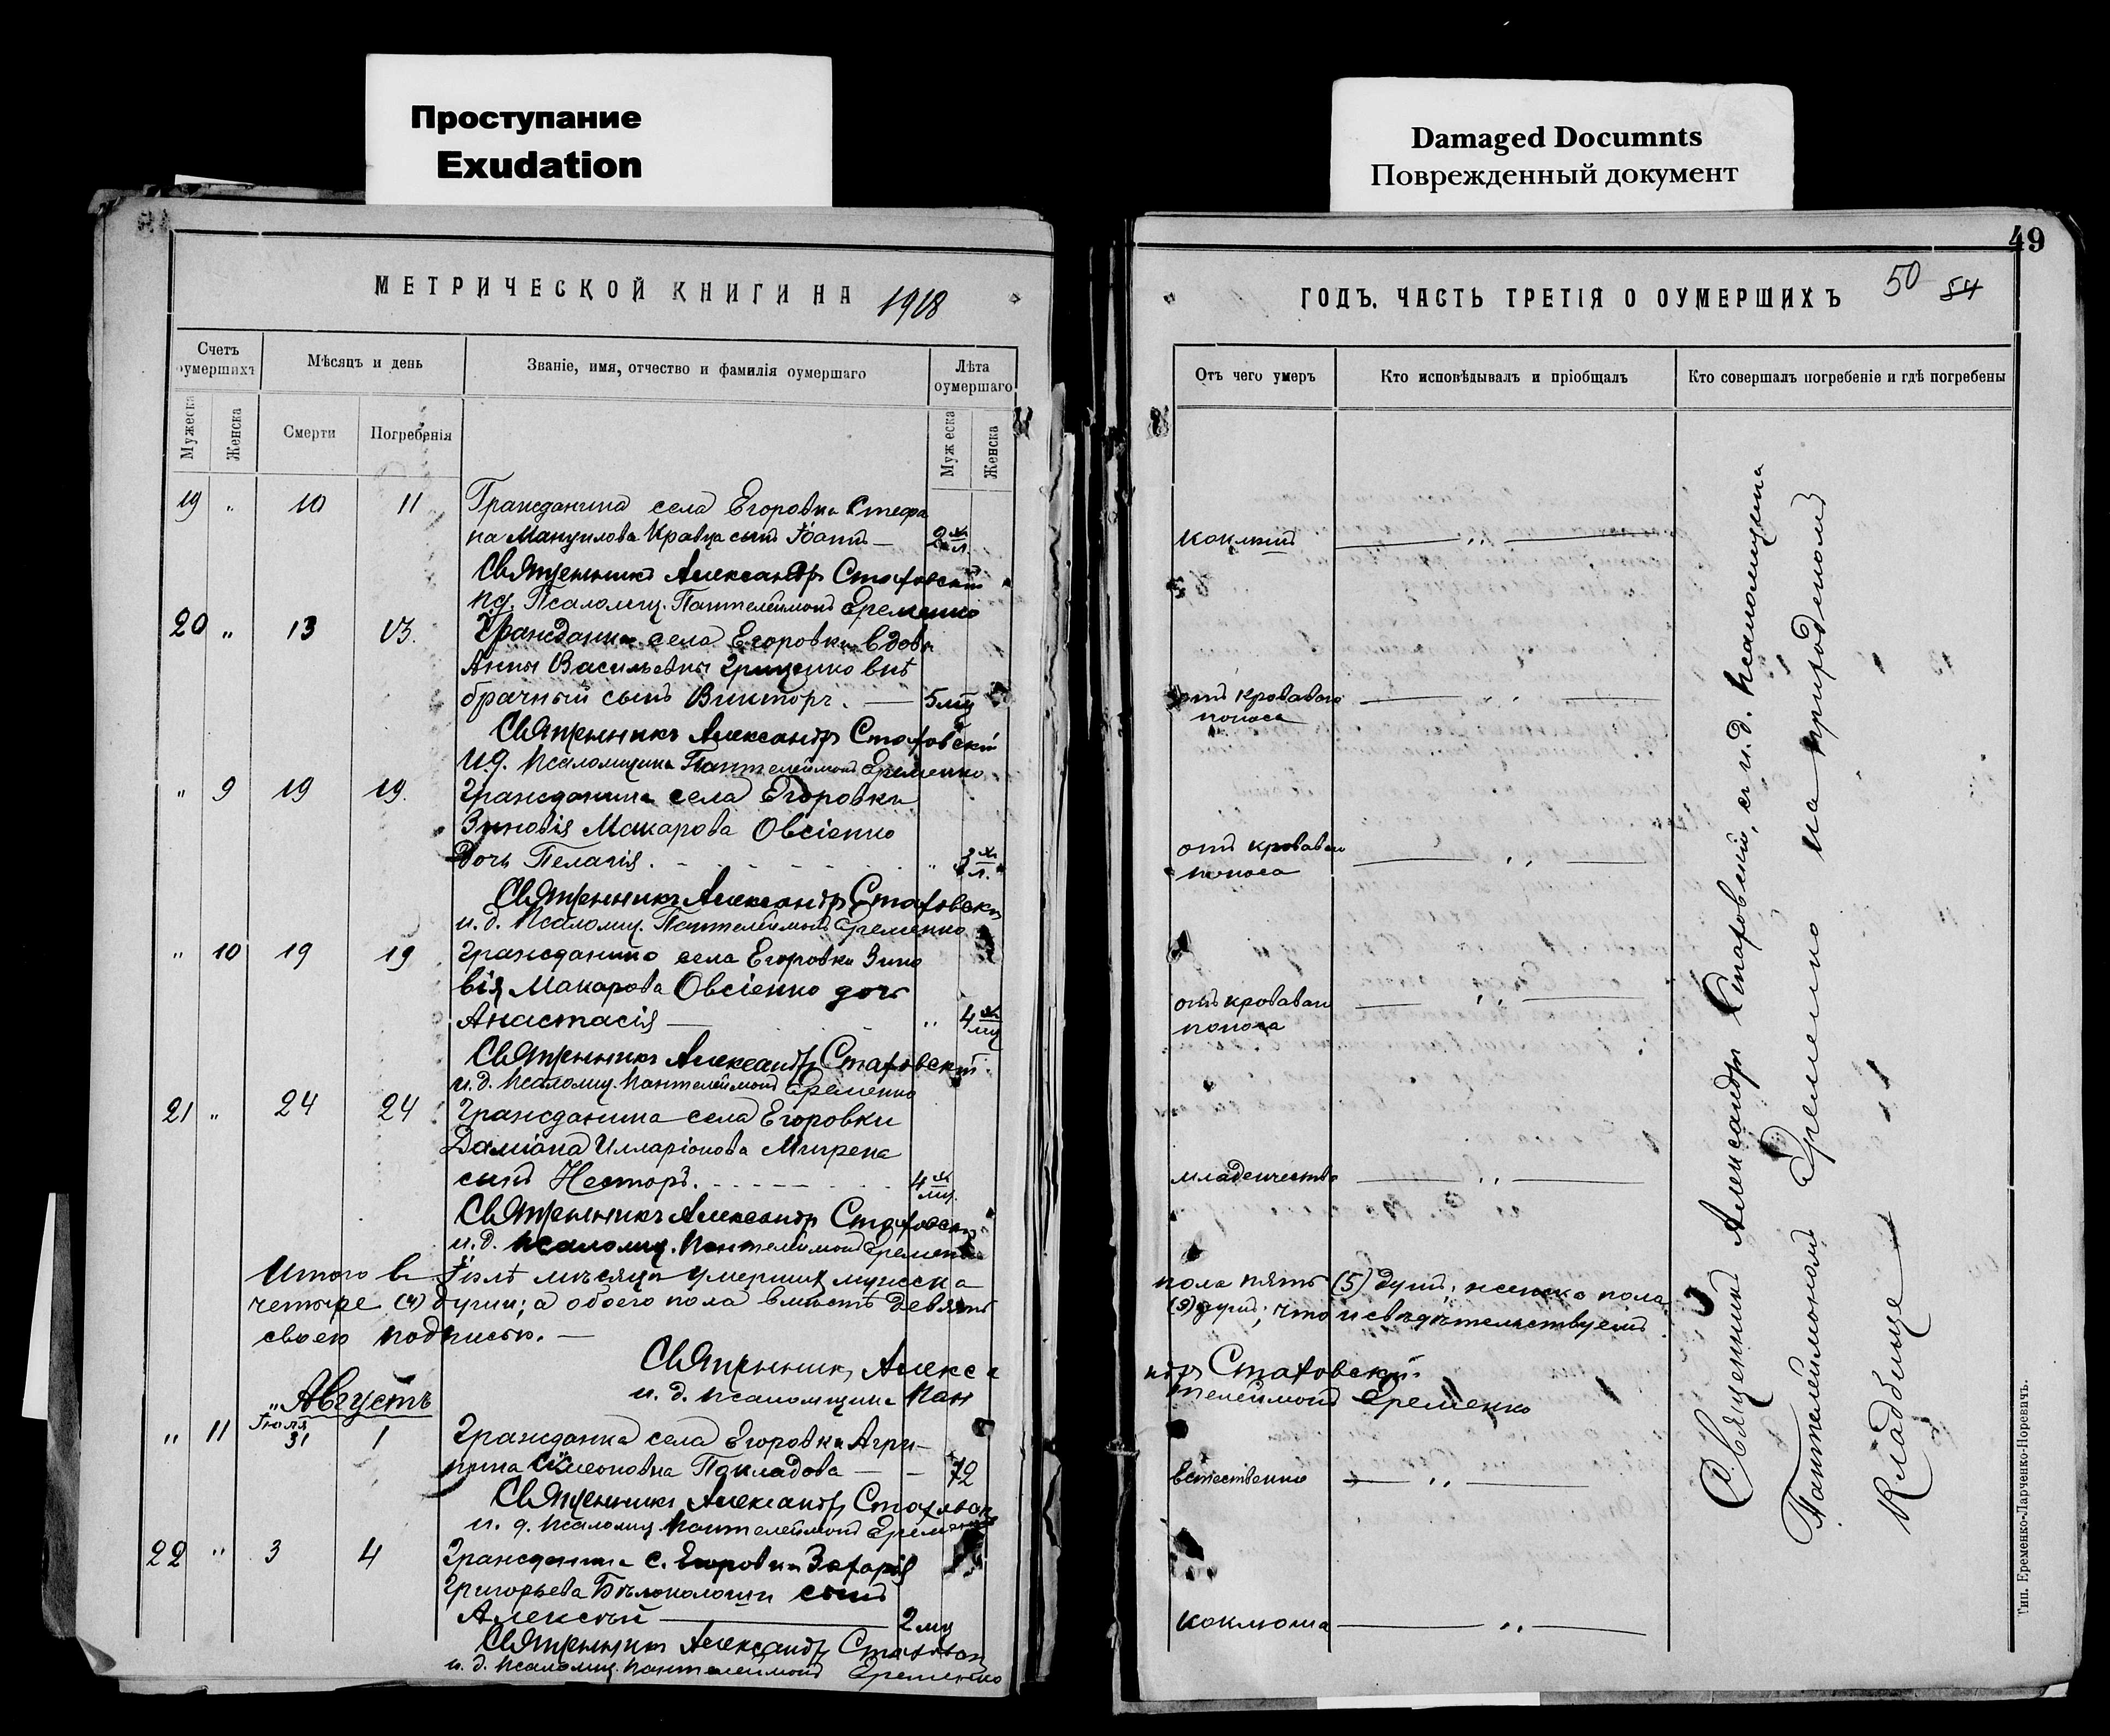 Проступание
Exudation
Damaged Documnts
Поврежденный документ
МЕТРИЧЕСКОЙ КНИГИ НА 1918
Счетъ оумершихъ
Мѣсяцъ и день
Званіе, имя, отчество и фамилія оумершаго
Лѣта оумершаго
Мужеска
Женска
Смерти
Погребенія
Мужеска
Женска
19 " 10 11 Гражданина села Егоровки Стефа
на Мануилова Кравца сынъ Іоаннъ — 2
Священникъ Александръ Стаховскій
и.д. Псаломщ. Пантелеймонъ Еременко
20 " 13 13. Гражданки села Егоровки вдовы
Анны Васильевны Гриценко внѣ
брачный сынъ Викторъ. — 5 мц
Священникъ Александръ Стаховскій
И.д. Псаломщика Пантелеймонъ Еременко
" 9 19 19. Гражданина села Егоровки
Зиновія Макарова Овсіенко
дочь Пелагія. " 3 л.
Священникъ Александръ Стаховскій
и.д. Псаломщ. Пантелеймонъ Еременко
" 10 19 19 Гражданина села Егоровки Зино
вія Макарова Овсіенко дочь
Анастасія — " 4 мц
Священникъ Александръ Стаховскій
и.д. Псаломщ. Пантелеймонъ Еременко
21 " 24 24 Гражданина села Егоровки
Даміана Илларіонова
сынъ Несторъ. 4 мц.
Священникъ Александръ Стаховскій
и.д. Псаломщ. Пантелеймонъ Еременко
Итого в Іюлѣ мѣсяцѣ умершихъ мужска
четыре (4) души; а обоего пола вмѣстѣ девять
своею подписью. —
Священникъ Алекса
и.д. псаломщика Пан
" Августъ
" 11 Іюля 31 1 Гражданка села Егоровки Агри-
пина Симеоновна Покладова — — 72
Священникъ Александръ Стаховскій
и.д. псаломщ. Пантелеймонъ Еременко
22 " 3 4 Гражданина с. Егоровки Захарія
Григорьева сынъ
Алексѣй — 2 мц
Священникъ Александръ Стаховскій
и.д. псаломщ. Пантелеймонъ Еременко
49
ГОДЪ. ЧАСТЬ ТРЕТІЯ О ОУМЕРШИХЪ 50 54
Отъ чего умеръ
Кто исповѣдывалъ и пріобщалъ
Кто совершалъ погребеніе и гдѣ погребены
коклюшъ — " —
отъ кроваваго — " —
поноса
отъ кроваваго — " —
поноса
отъ кроваваго — " —
поноса
младенчества — " —
пола пять (5) душъ, женско пола
душъ; что и свѣдѣтельствуемъ
ндръ Стаховскій.
телеймонъ Еременко
естественно — " —
коклюша — " —
Священникъ Александръ Стаховскій, съ и.д. псаломщика
Пантелеймономъ Еременко на приходскомъ
Кладбище
Тип. Еременко-Ларченко-Поревичъ.